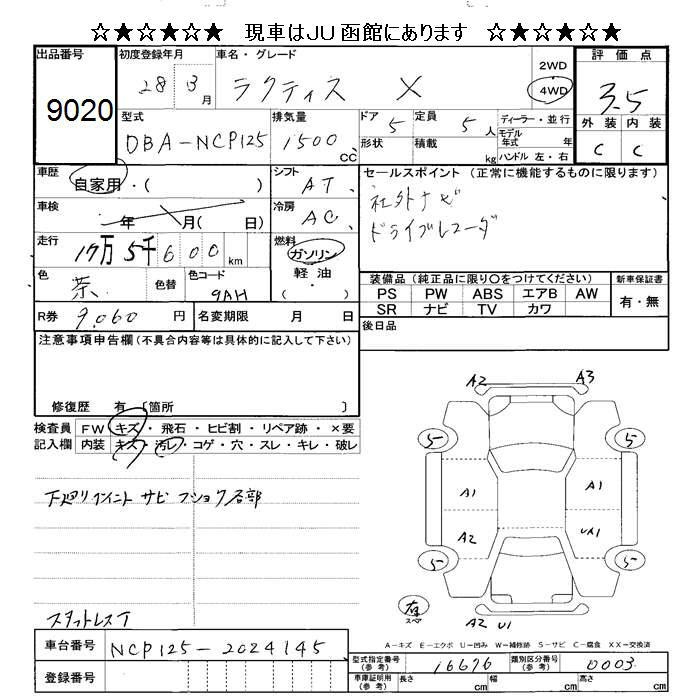 ☆★☆★☆★ 現車はJU函館にあります ☆★☆★☆★
出品番号 初度登録年月 車名・グレード 2WD 評価点
9020 28 3月 ラクティス X 4WD 3.5
型式 排気量 ドア 定員 ディーラー・並行 外装 内装
DBA-NCP125 1500cc 5 5人 モデル年式 年 C C
形状 積載 kg ハンドル 左・右
車歴 自家用・( ) シフト AT セールスポイント (正常に機能するものに限ります)
車検 年 月( 日) 冷房 AC 社外ナビ
ドライブレコーダ
走行 17万5千600km 燃料 ガソリン
軽油・( )
色 茶 色替 色コード 9AH 装備品(純正品に限り○をつけてください) 新車保証書
PS PW ABS エアB AW 有・無
SR ナビ TV カワ
R券 9,060円 名変期限 月 日 後日品
注意事項申告欄(不具合内容等は具体的に記入して下さい)
修復歴 有〔箇所 〕
検査員 FW キズ・飛石・ヒビ割・リペア跡・×要
記入欄 内装 キズ・汚レ・コゲ・穴・スレ・キレ・破レ
A2 A3
5 5
A1 A1
A2 UA1
5 5
有 スペア
A2 U1
サビ 各部
スタットレスT
A-キズ E-エクボ U-凹み W-補修跡 S-サビ C-腐食 XX-交換済
車台番号 NCP125-2024145
登録番号
型式指定番号(参考) 16676 類別区分番号(参考) 0003
車庫証明用(参考) 長さ cm 幅 cm 高さ cm